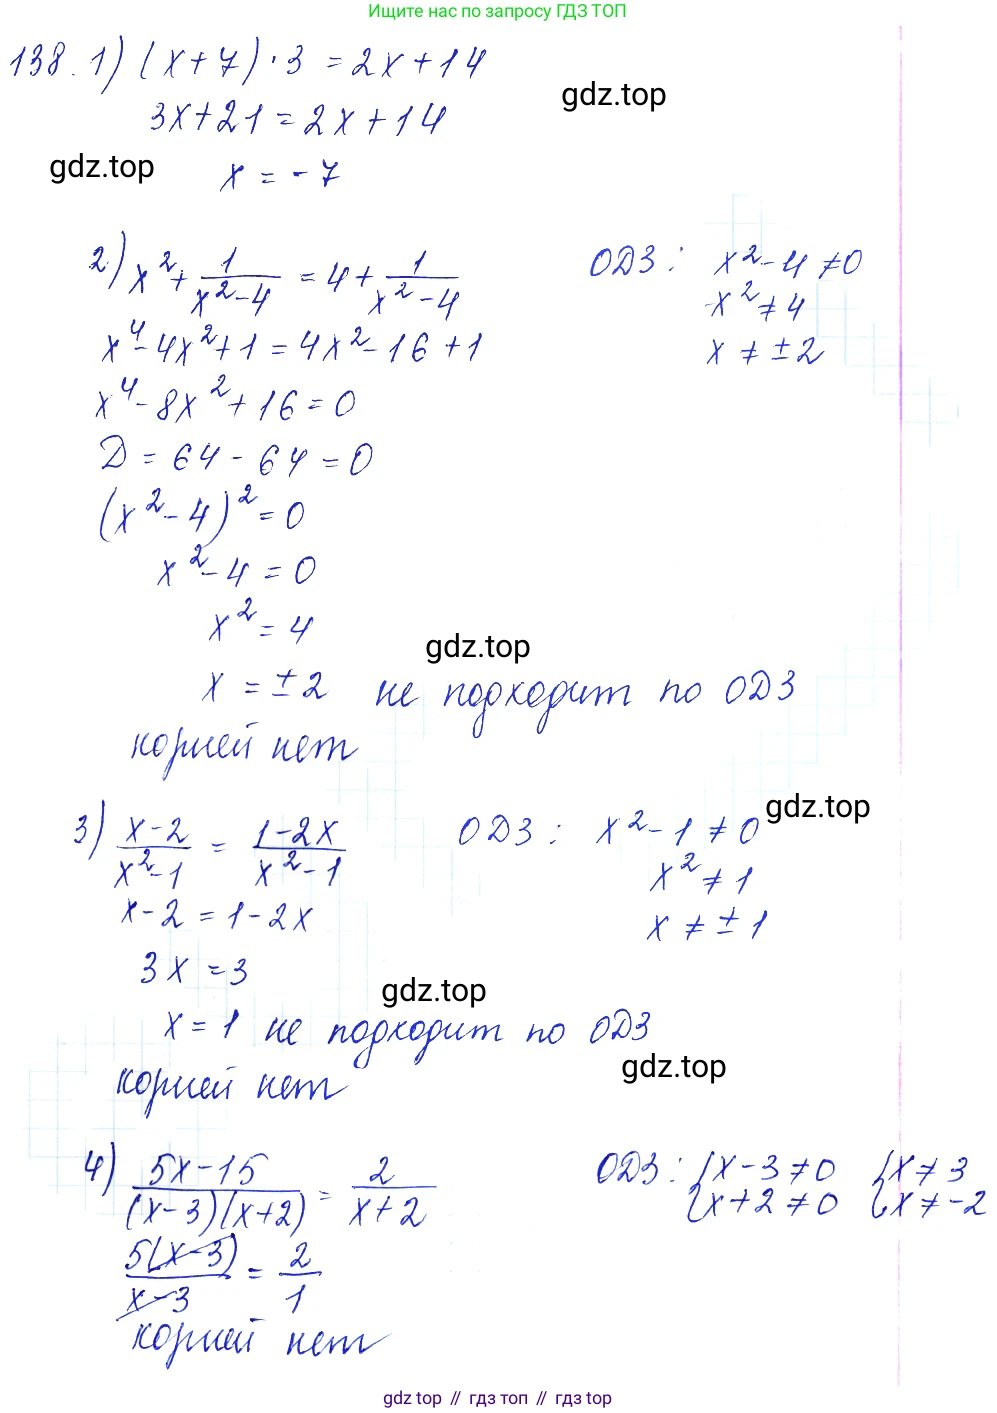 Ищите нас по запросу ГДЗ ТОП
138. 1) (x+7)·3 = 2x+14
gdz.top
3x+21=2x+14
gdz.top
x = -7
2) x²+1/(x²-4) = 4+1/(x²-4) ОДЗ: x²-4≠0
x²≠4
x⁴-4x²+1=4x²-16+1 x≠±2
x⁴-8x²+16=0
D=64-64=0
(x²-4)²=0
x²-4=0
x²=4
gdz.top
x=±2 не подходит по ОДЗ
корней нет
gdz.top
3) (x-2)/(x²-1) = (1-2x)/(x²-1) ОДЗ: x²-1≠0
x²≠1
x-2=1-2x x≠±1
3x=3
gdz.top
x=1 не подходит по ОДЗ
gdz.top
корней нет
4) (5x-15)/((x-3)(x+2)) = 2/(x+2) ОДЗ: {x-3≠0 {x≠3
{x+2≠0 {x≠-2
5(x-3)/(x-3) = 2/1
корней нет
gdz top // гдз топ // gdz top